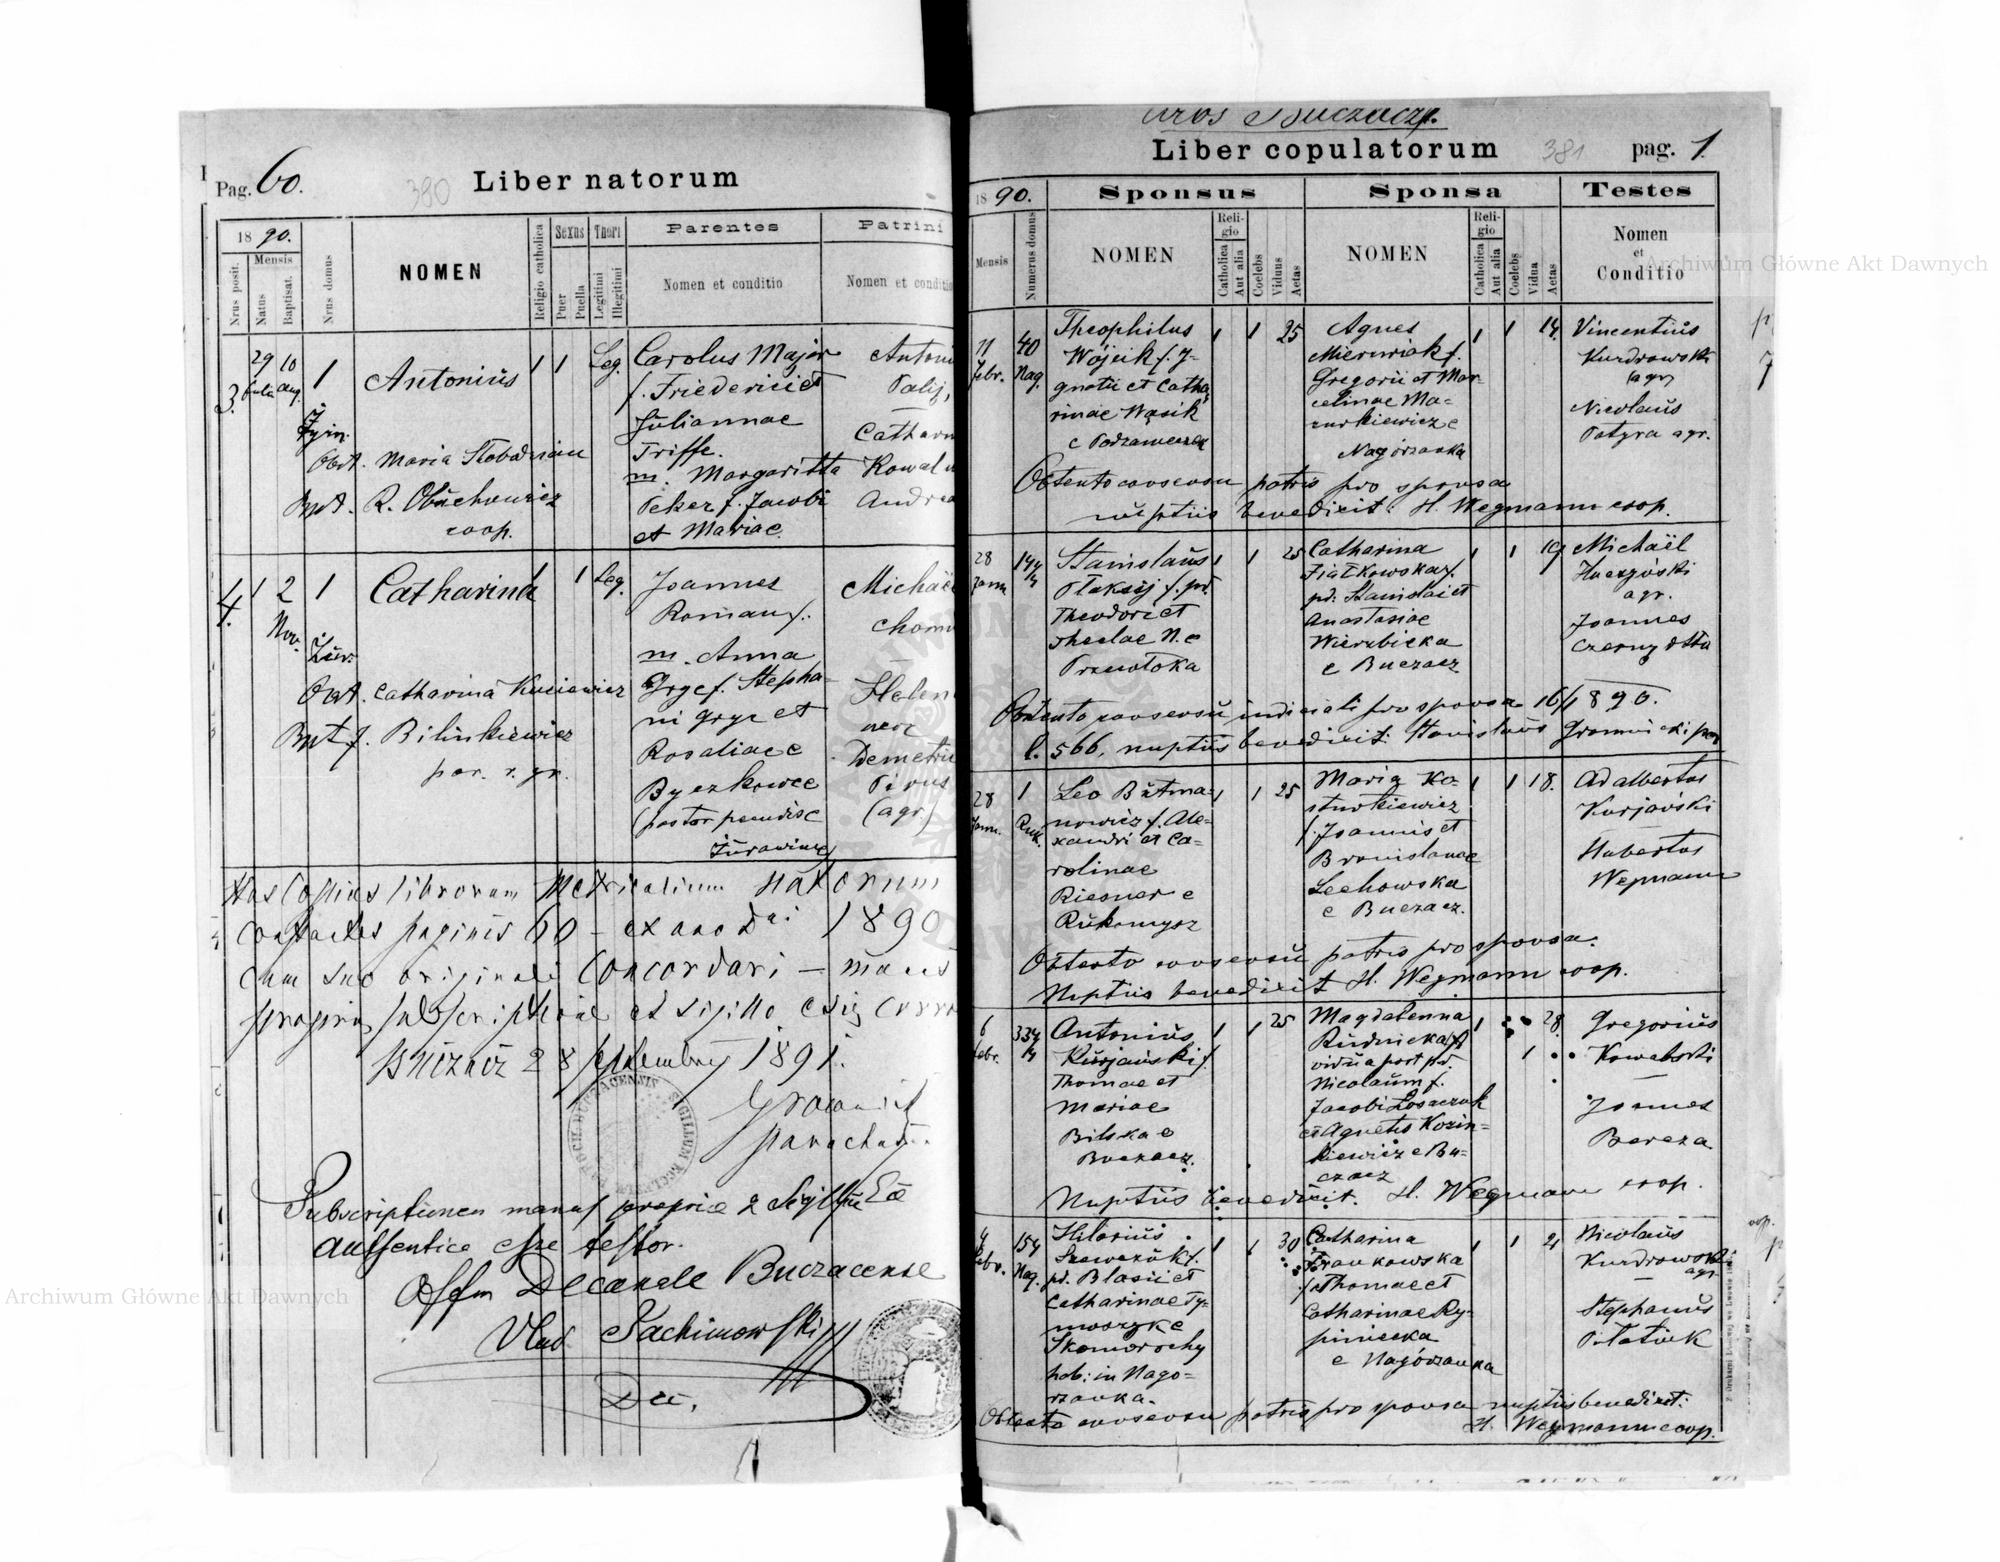 Pag. 60.
380
Liber natorum
18 90.
Mensis
Nrus posit.
Natus
Baptisat.
Nrus domus
NOMEN
Religio catholica
Sexus
Puer
Puella
Thori
Legitimi
Illegitimi
Parentes
Nomen et conditio
Patrini
Nomen et conditio
3.
29 Julii
10 Aug.
1
Antonius
1
1
Leg.
Carolus Major
f. Friederici et
Juliannae
Triffe.
m. Margaritta
Peker f. Jacobi
et Mariae.
Antoni
Palij,
Cathari
Kowal
Andrea
Obst. Maria Slobodzian
Bapt. R. Obuchowicz
coop.
4.
1
2
Nov.
1
Catharina
1
Leg.
Joannes
Roman f.
m. Anna
Gryc f. Stepha-
ni Gryc et
Rosaliae e
Byczkowce
(pastor pecudis e
Żurawince)
Michaël
chom
Helen
uxor
Demetrii
Pirus
(agr.)
Obst. Catharina Kusiewicz
Bapt. f. Bilinkiewicz
par. r. gr.
Has Copias librorum Metricalium natorum
paginis 60 - ex anno Dni 1890
cum suo originali Concordari - manus
propria subscriptione et sigillo
Buczacz 28 Septembris 1891.
Gromnicki
parochus
Subscriptionem manus propriae & Sigillum Eccl
authentica esse testor.
Offm Decanale Buczacense
Vlad Sachimowski
Dec.
uros Buczacz.
Liber copulatorum
381
pag. 1
18 90.
Mensis
Numerus domus
Sponsus
NOMEN
Reli-
gio
Catholica
Aut alia
Coelebs
Viduus
Aetas
Sponsa
NOMEN
Reli-
gio
Catholica
Aut alia
Coelebs
Vidua
Aetas
Testes
Nomen
et
Conditio
11
Febr.
40
Nag.
Theophilus
Wójcik f. J-
gnatii et Catha-
rinae Wąsik
e Podzameczek
1
1
25
Agnes
Mierwiak f.
Gregorii et Mar-
celinae Ma-
zurkiewicz e
Nagórzanka
1
1
14
Vincentius
Kurdrowski
(agr)
Nicolaus
Patyra agr.
Obtento consensu patris pro sponsa
nuptiis benedixit: H. Wegmann coop.
28
Janu.
144
Stanislaus
Plaksij f. pd.
Theodori et
Theclae N. e
Przewłoka
1
1
25
Catharina
Fiałkowska f.
pd. Stanislai et
Anastasiae
Wierzbicka
e Buczacz
1
1
19
Michaël
Huczyóski
agr.
Joannes
Czerny
Obtento consensu iudiciali pro sponsa 16/1 890.
l. 566, nuptiis benedixit: Stanislaus Gromnicki par
28
Janu.
1
Ruk.
Leo Butma-
nowicz f. Ale-
xandri et Ca-
rolinae
Riesner e
Rukomysz
1
1
25
Maria Ko-
sturkiewicz
f. Joannis et
Bronislavae
Lechowska
e Buczacz.
1
1
18.
Adalbertus
Kurjański
Hubertus
Wegmann
Obtento consensu patris pro sponsa.
Nuptiis benedixit H. Wegmann coop.
6
Febr.
334
Antonius
Kurjański f.
Thomae et
Mariae
Bilska e
Buczacz.
1
1
25
Magdalenna
Rudnicka
vidua post pd.
Nicolaum f.
Jacobi Łosaczuk
et Agnetis Kozin-
kiewicz e Bu-
czacz
1
1
28
Gregorius
Kowalski
Joannes
Bereza
Nuptiis benedixit. H. Wegmann coop.
4
Febr.
154
Nag.
Hilarius
Szewczuk f.
pd. Blasii et
Catharinae Ty-
moszyk e
Skomorochy
hab: in Nago-
rzanka.
1
1
30
Catharina
Frankowska
f. Thomae et
Catharinae Ry-
piniecka
e Nagórzanka
1
1
21
Nicolaus
Kurdrowski
agr.
Stephanus
Pilatiuk
Obtento consensu patris pro sponsa nuptiis benedixit:
H. Wegmann coop.
Archiwum Główne Akt Dawnych
Archiwum Główne Akt Dawnych